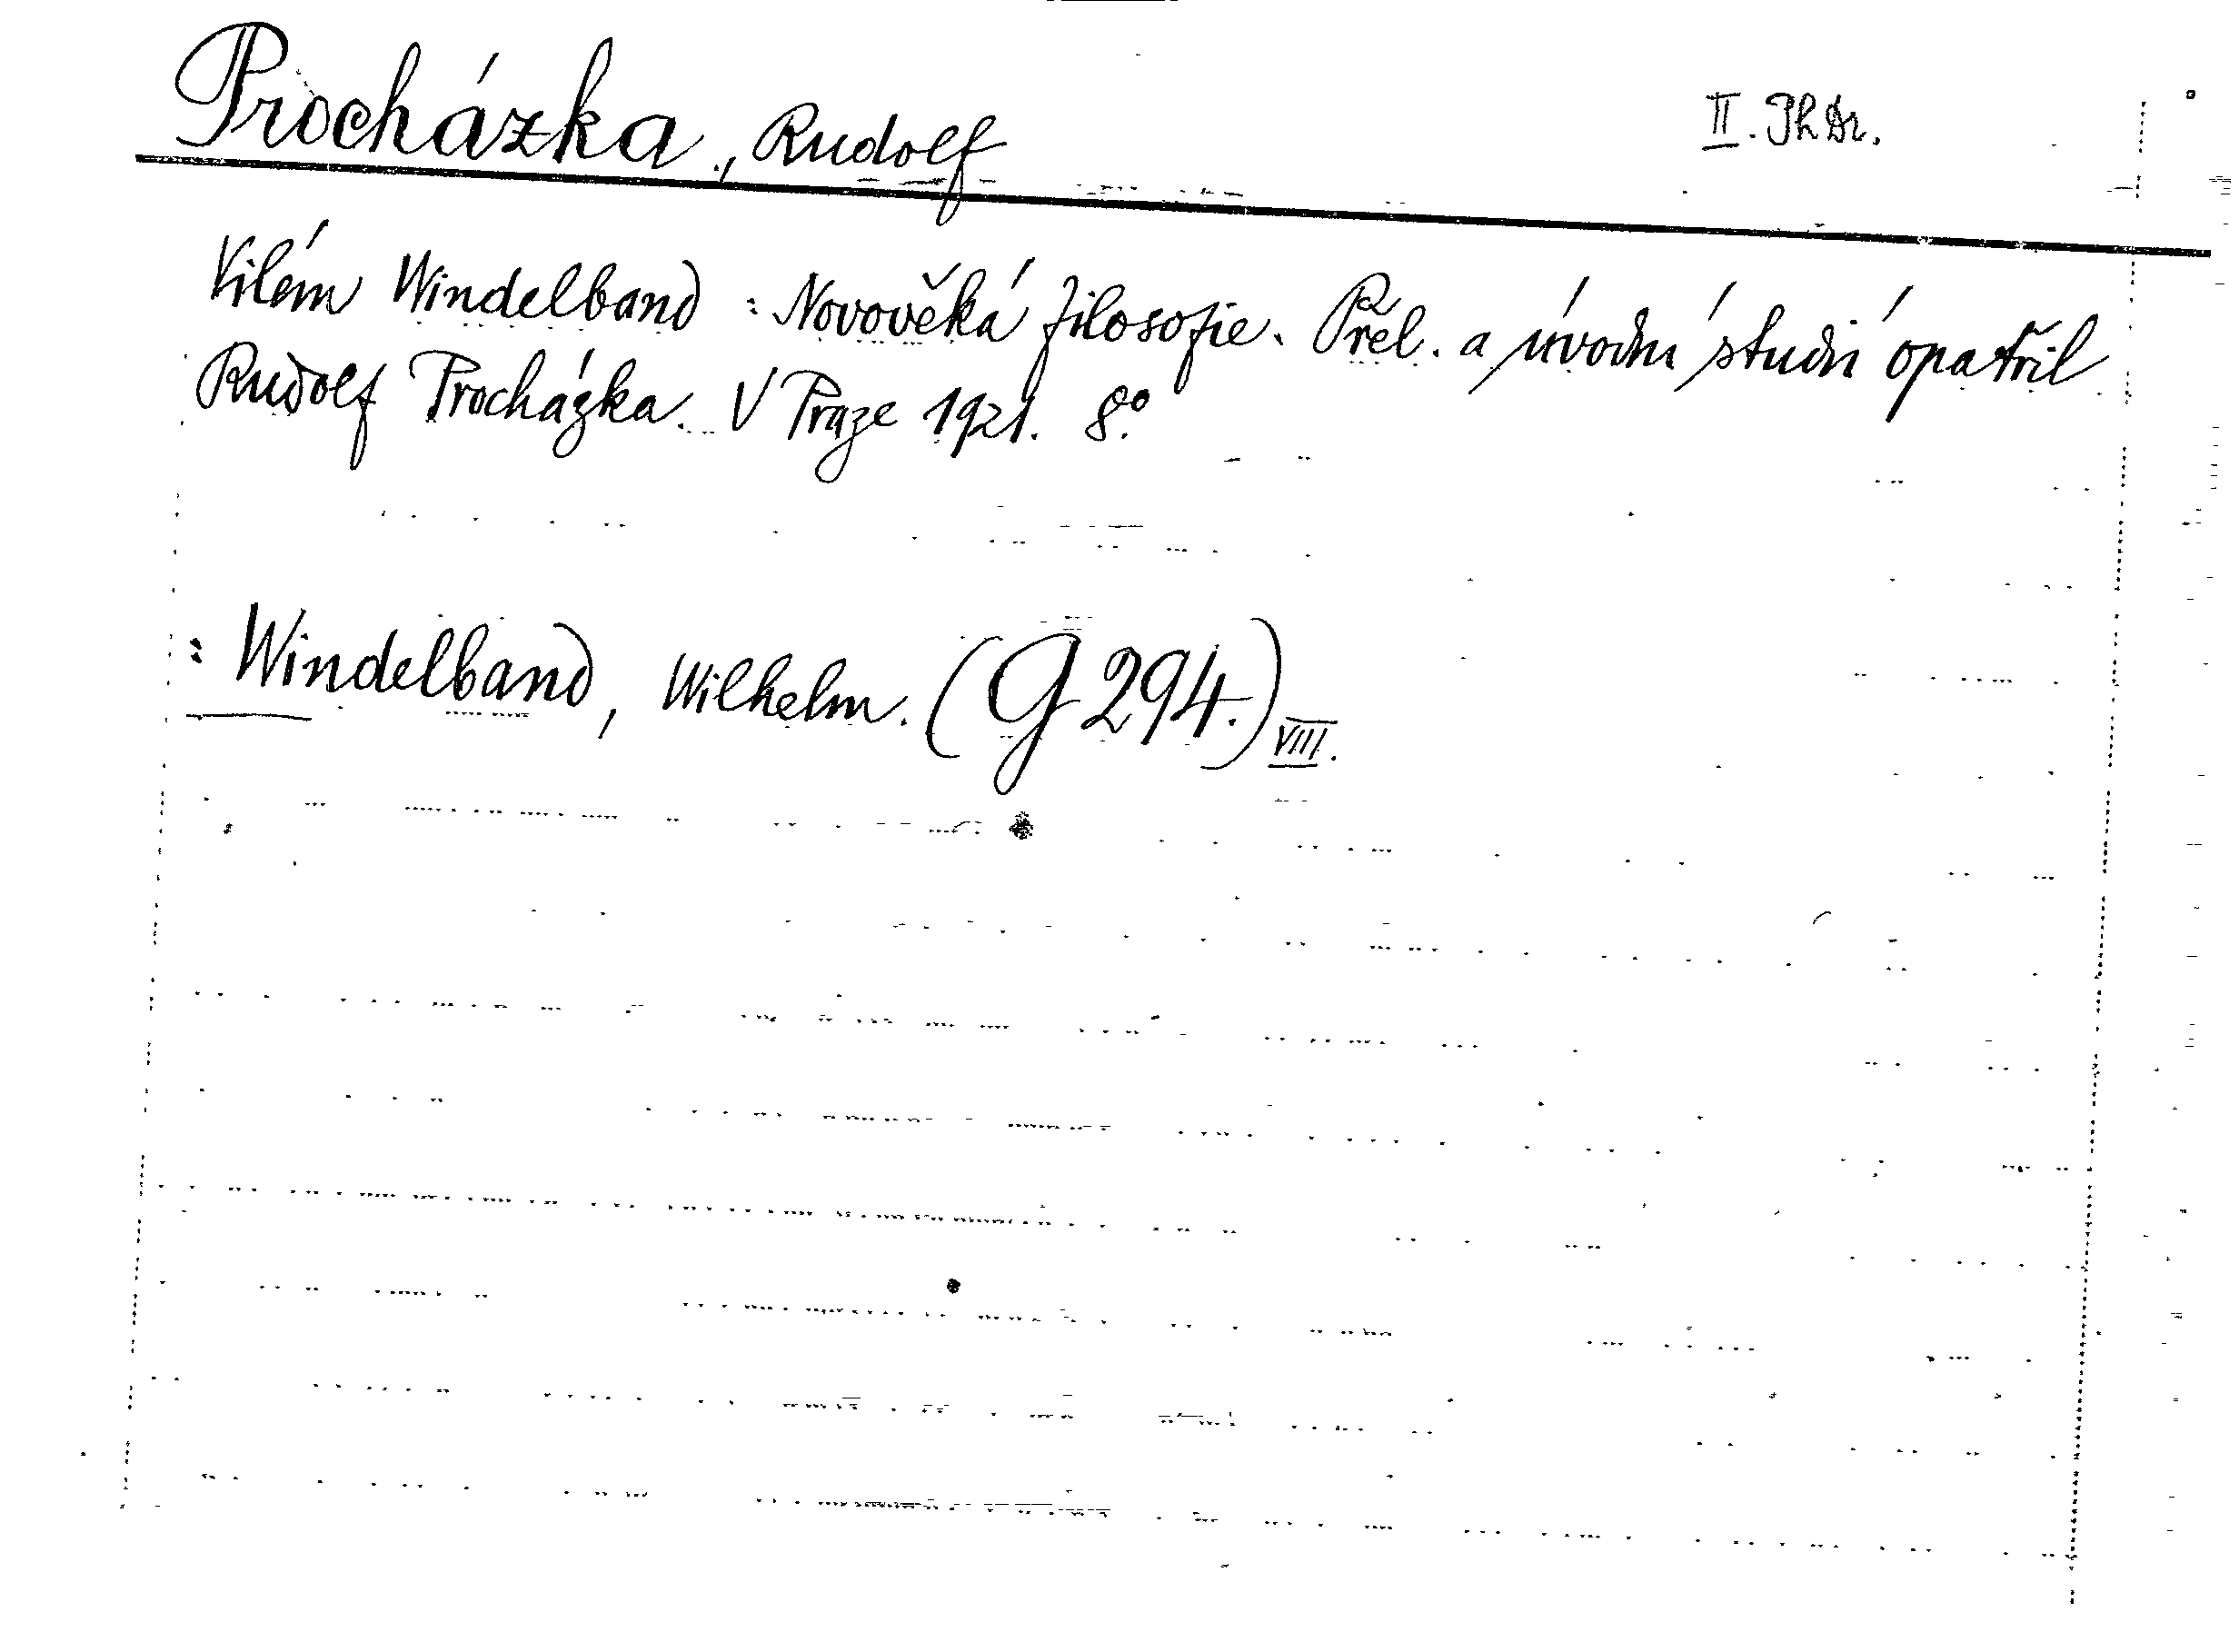 Procházka, Rudolf II. PhDr.
Vilém Windelband : Novověká filosofie. Přel. a úvodní studií opatřil
Rudolf Procházka. V Praze 1921. 8.°
: Windelband, Wilhelm. (G 294.) VIII.